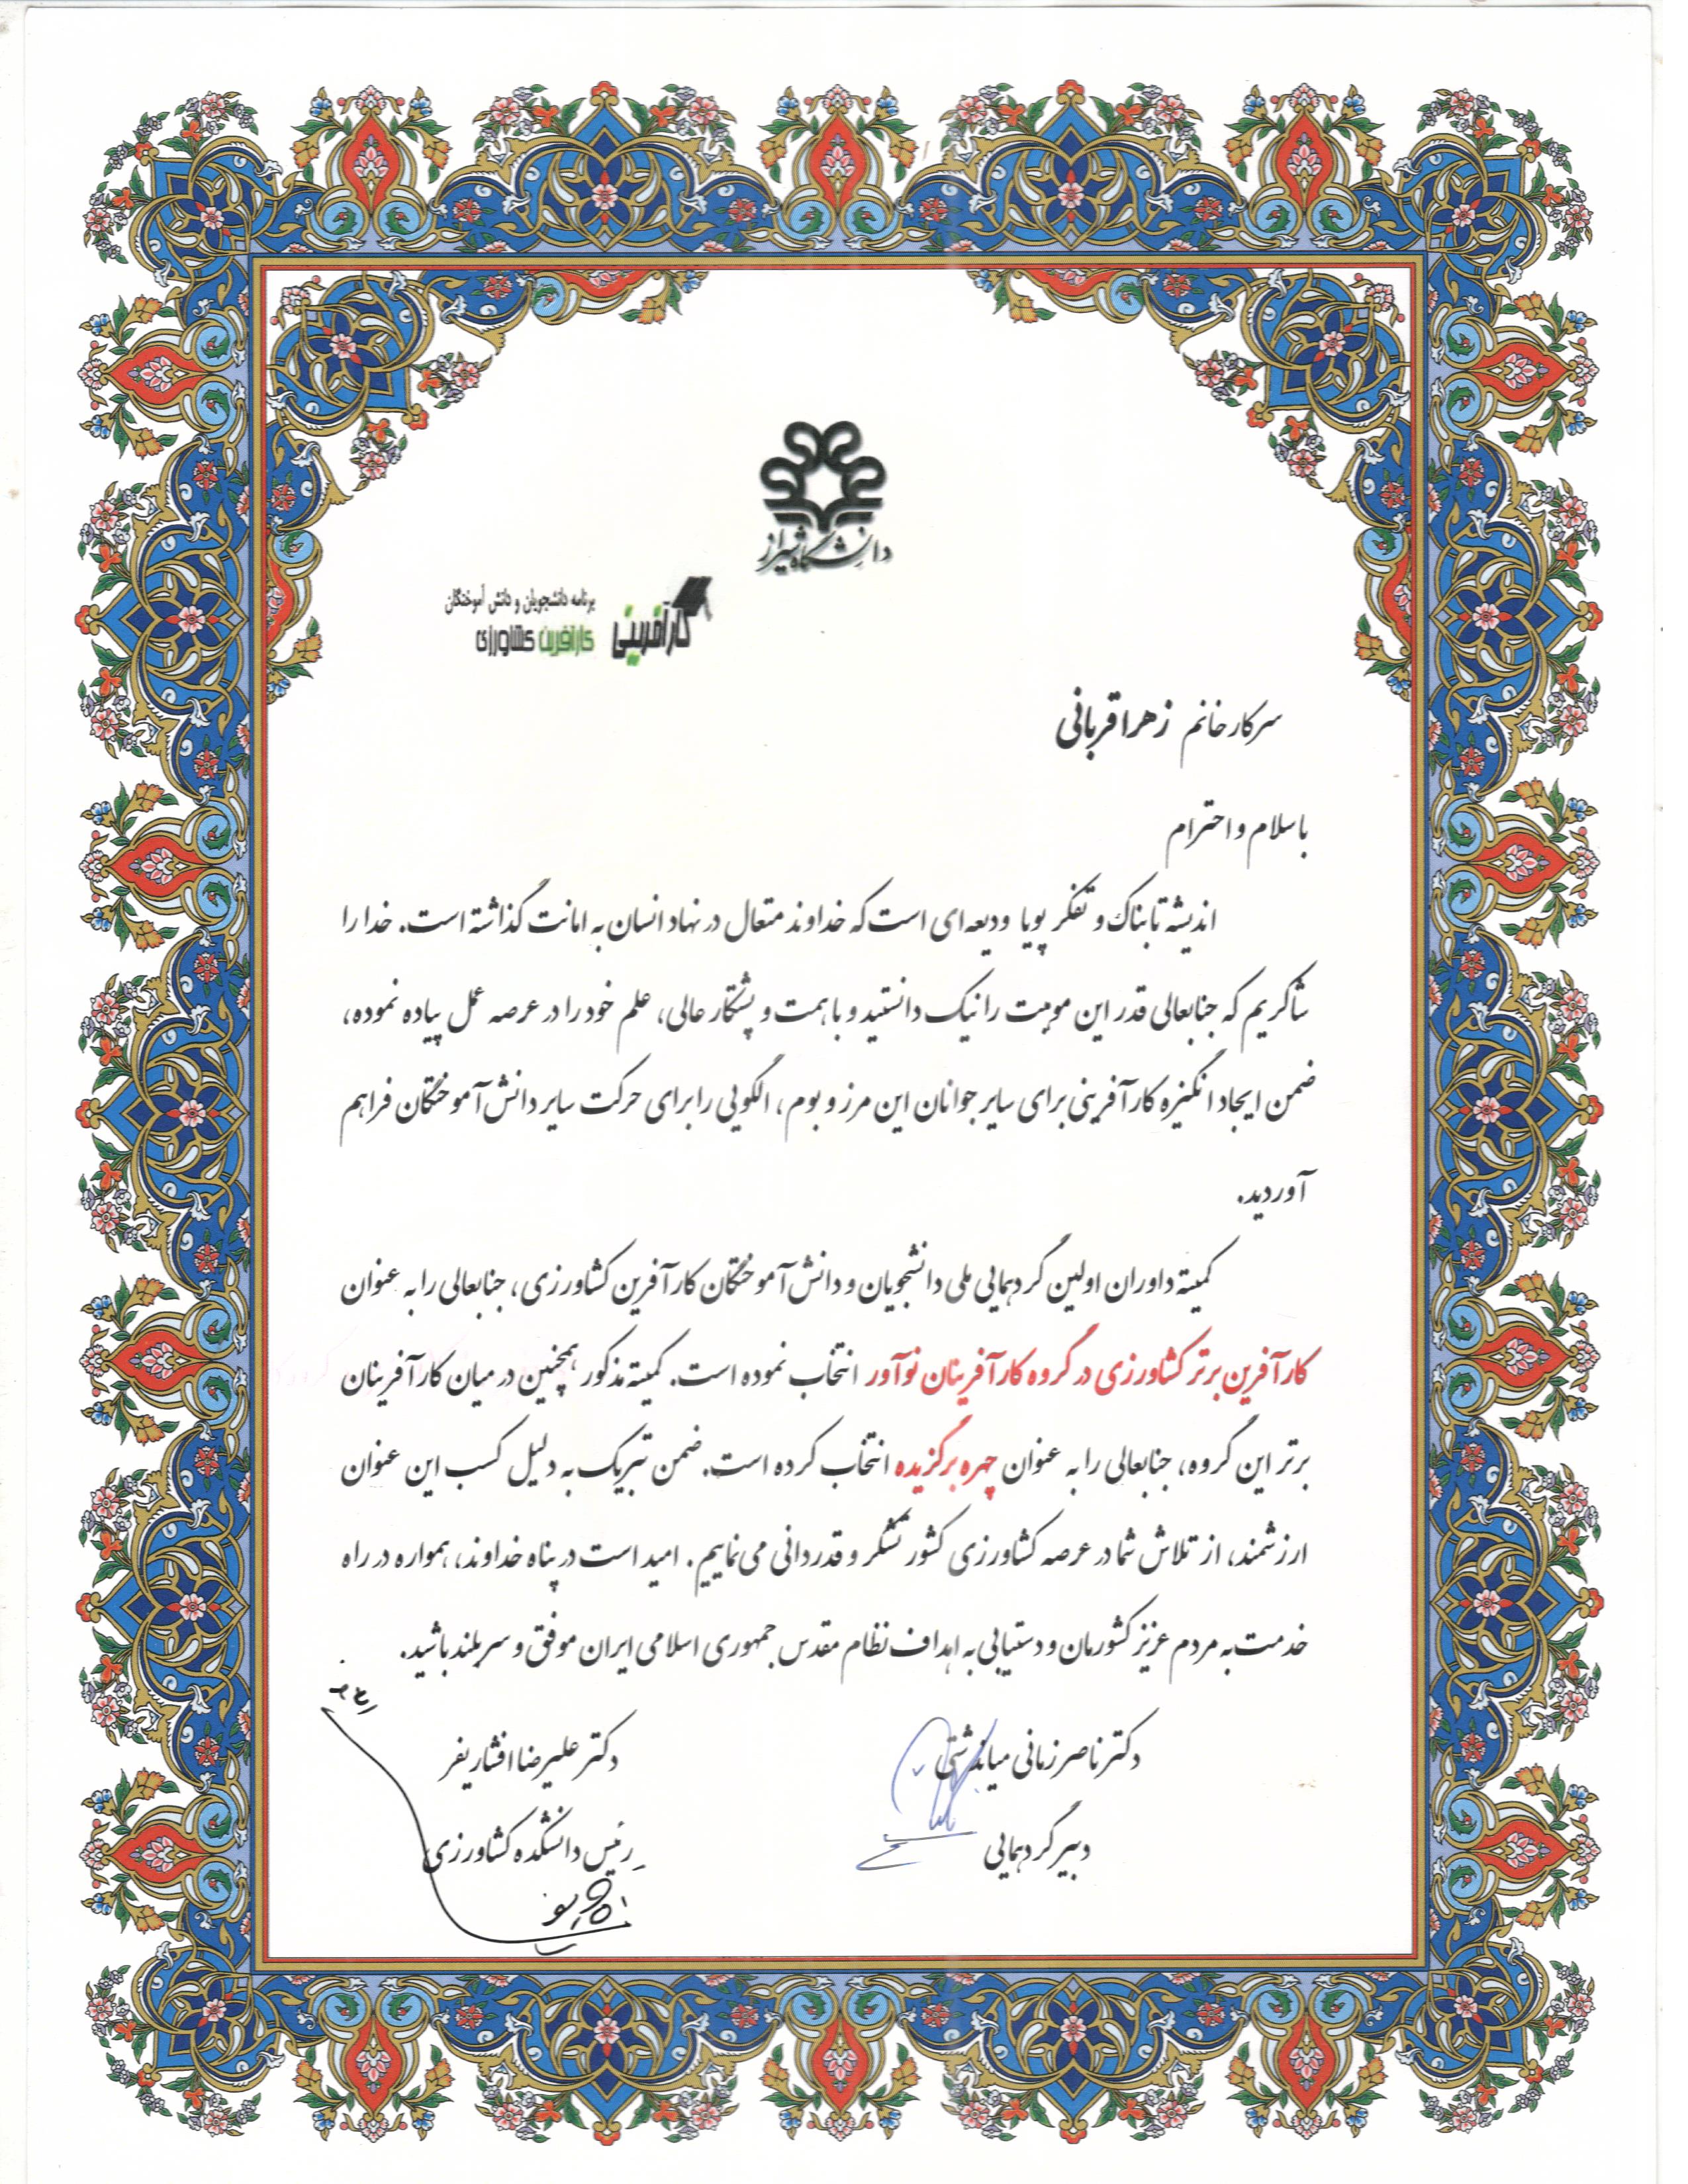 دانشگاه شیراز
برنامه دانشجویان و دانش آموختگان
کارآفرینی
کارآفرین کشاورزی
سرکار خانم زهرا قربانی
با سلام و احترام
اندیشه تابناک و تفکر پویا ودیعه ای است که خداوند متعال در نهاد انسان به امانت گذاشته است. خدا را
شاکریم که جنابعالی قدر این موهبت را نیک دانستید و با همت و پشتکار عالی، علم خود را در عرصه عمل پیاده نموده،
ضمن ایجاد انگیزه کارآفرینی برای سایر جوانان این مرز و بوم، الگویی را برای حرکت سایر دانش آموختگان فراهم
آوردید.
کمیته داوران اولین گردهمایی ملی دانشجویان و دانش آموختگان کارآفرین کشاورزی، جنابعالی را به عنوان
کارآفرین برتر کشاورزی در گروه کارآفرینان نوآور انتخاب نموده است. کمیته مذکور همچنین در میان کارآفرینان
برتر این گروه، جنابعالی را به عنوان چهره برگزیده انتخاب کرده است. ضمن تبریک به دلیل کسب این عنوان
ارزشمند، از تلاش شما در عرصه کشاورزی کشور تشکر و قدردانی می نماییم. امید است در پناه خداوند، همواره در راه
خدمت به مردم عزیز کشورمان و دستیابی به اهداف نظام مقدس جمهوری اسلامی ایران موفق و سربلند باشید.
دکتر ناصر زمانی میاندشتی
دکتر علیرضا افشاریفر
دبیر گردهمایی
رئیس دانشکده کشاورزی